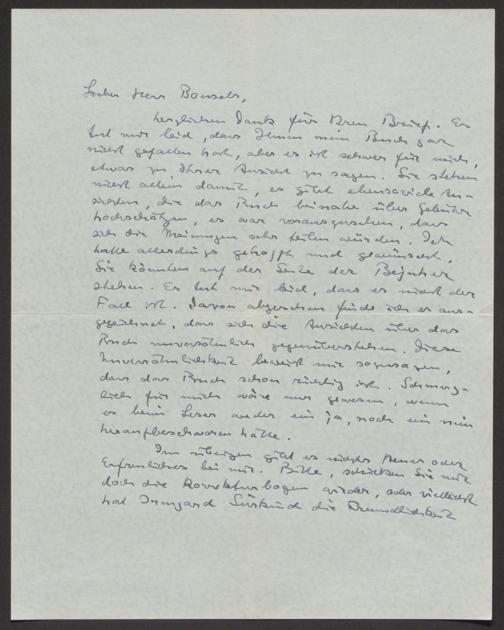 Lieber Herr Bonsels,
herzlichen Dank für Ihren Brief. Es
tut mir leid, dass Ihnen mein Buch gar
nicht gefallen hat, aber es ist schwer für mich,
etwas zu Ihrer Ansicht zu sagen. Sie stehen
nicht allein damit, es gibt ebensoviele An-
sichten, die das Buch beinahe über Gebühr
hochschätzen, es war vorauszusehen, dass
sich die Meinungen sehr teilen würden. Ich
hatte allerdings gehofft und gewünscht,
Sie könnten auf der Seite der Bejaher
stehen. Es tut mir leid, dass es nicht der
Fall ist. Davon abgesehen finde ich es aus-
gezeichnet, dass sich die Ansichten über das
Buch unversöhnlich gegenüberstehen. Diese
Unversöhnlichkeit beweist mir sozusagen,
dass das Buch schon richtig ist. Schmerz-
lich für mich wäre nur gewesen, wenn
es beim Leser weder ein ja, noch ein nein
heraufbeschworen hätte.
Im übrigen gibt es nichts Neues oder
Erfreuliches bei mir. Bitte, schicken Sie mir
doch die Korrekturbogen wieder, oder vielleicht
hat Irmgard Süskind die Freundlichkeit